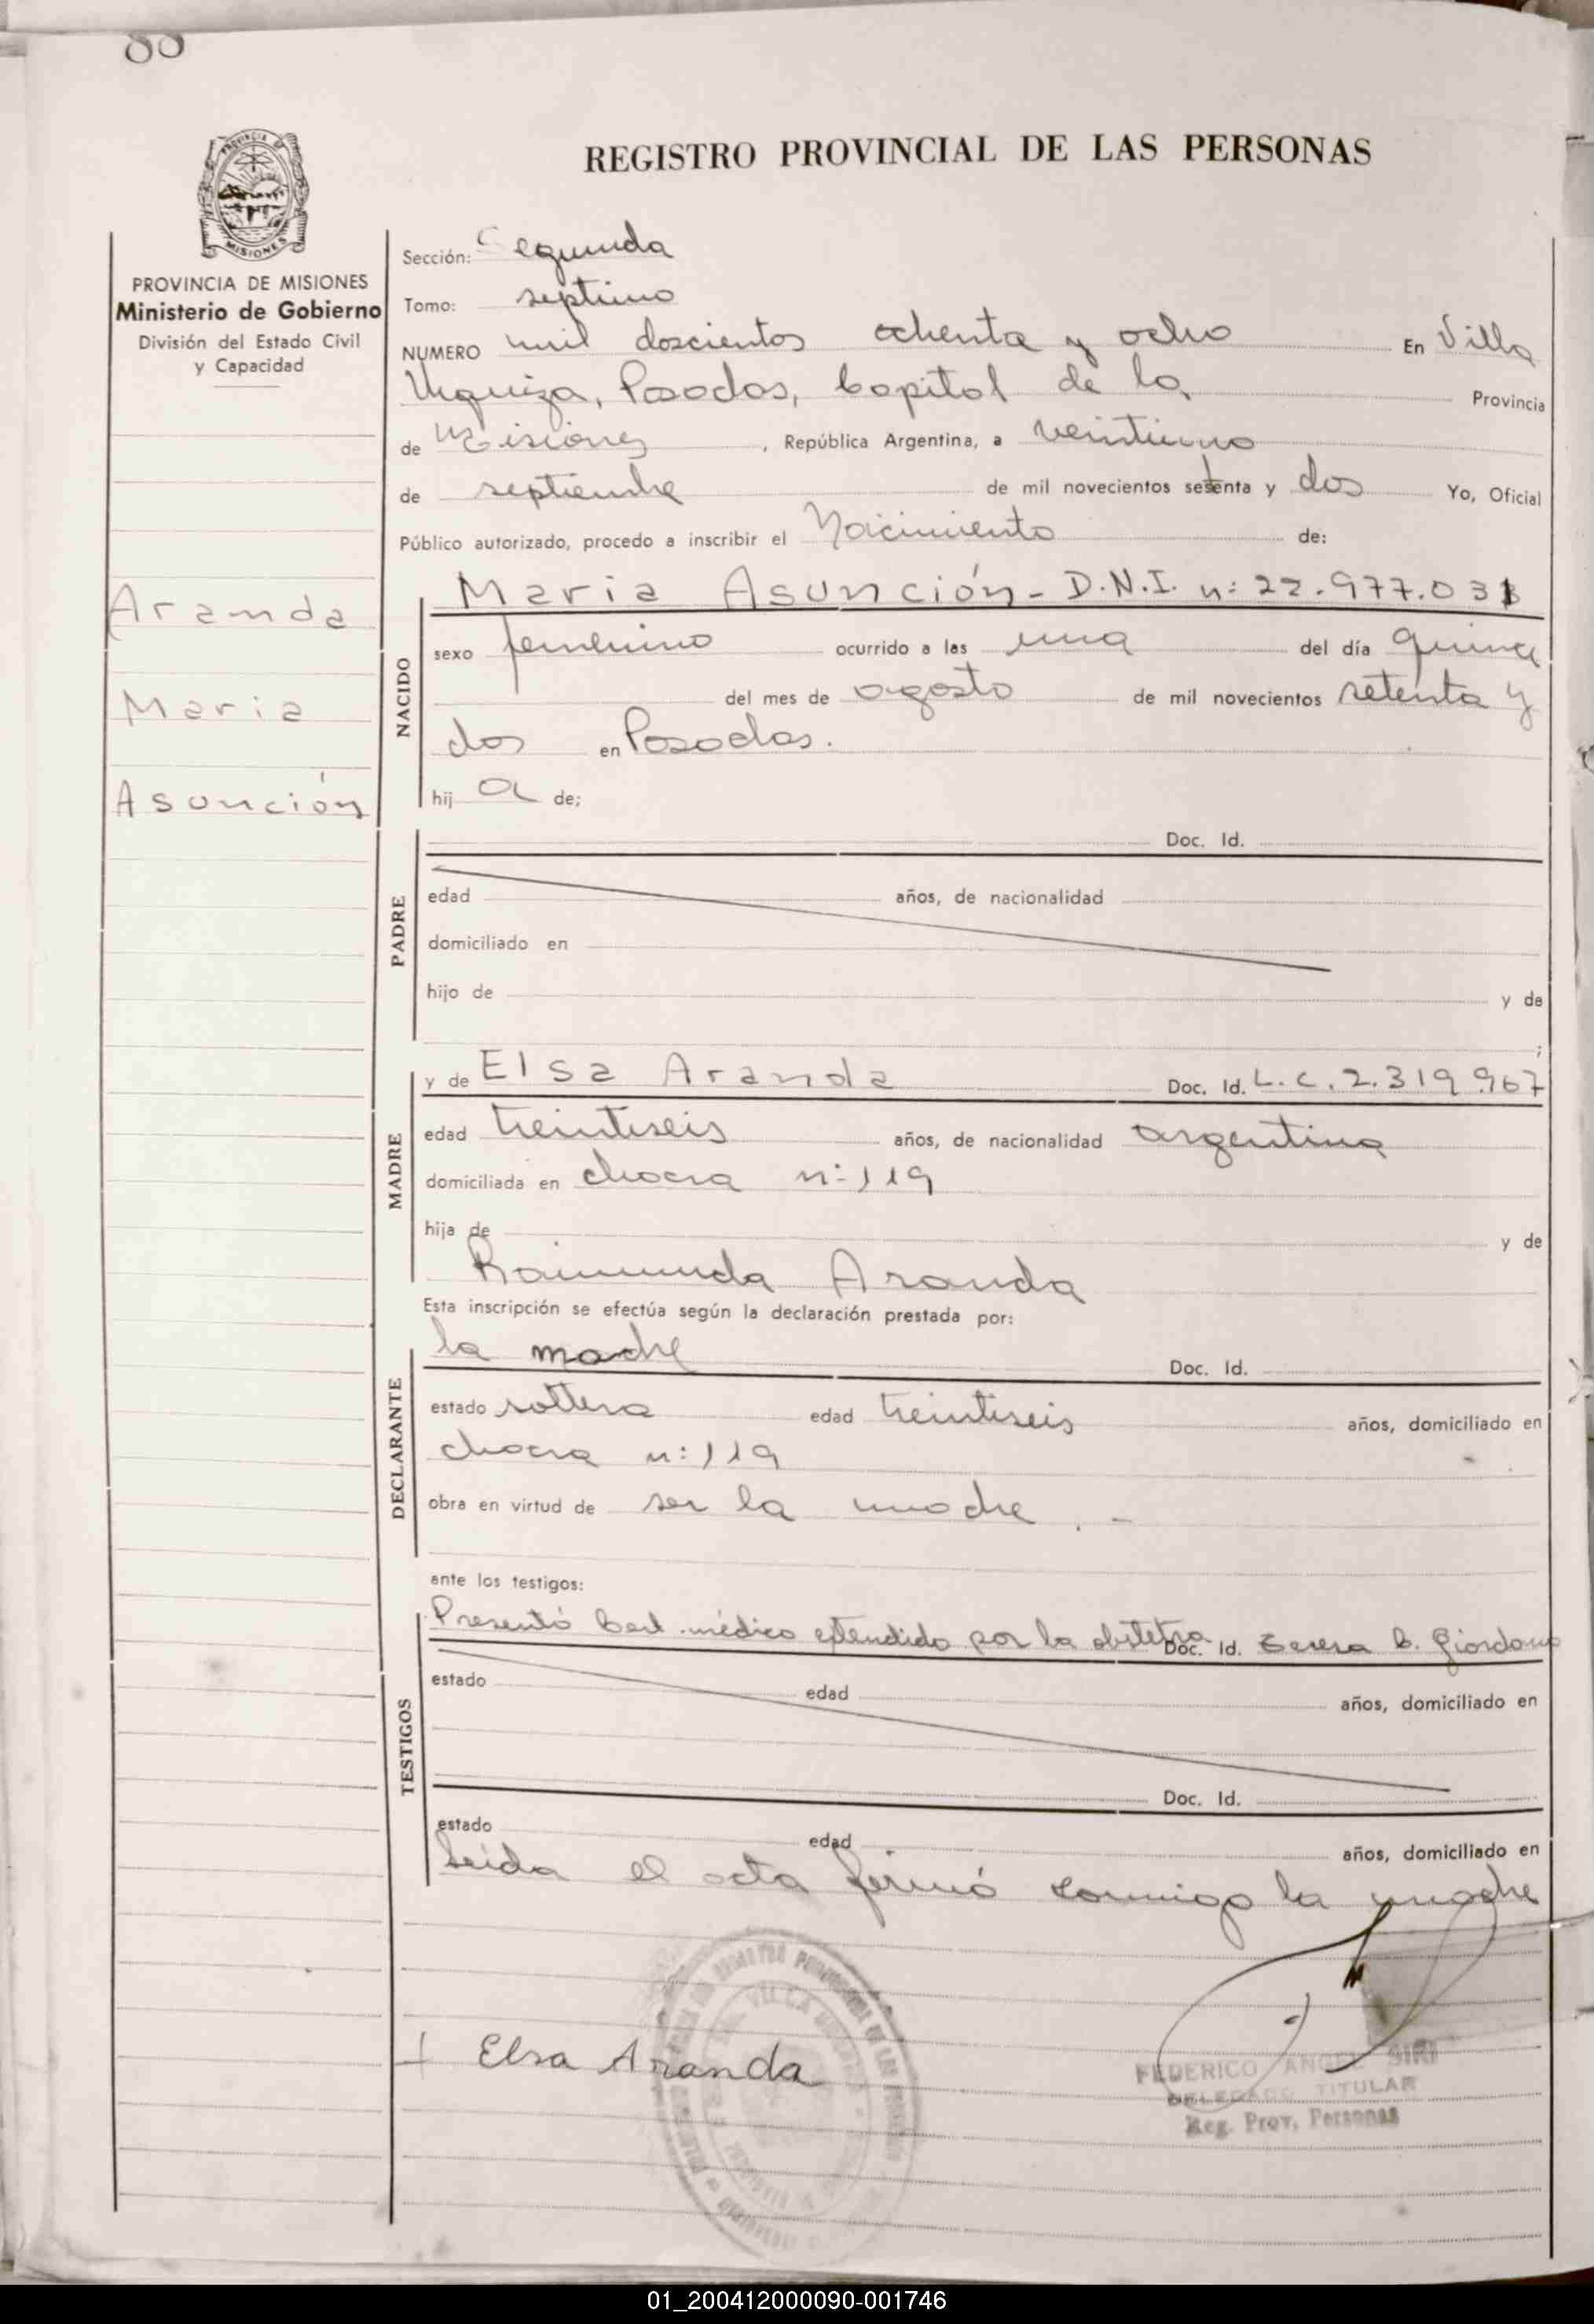 88
REGISTRO PROVINCIAL DE LAS PERSONAS
MISIONES
PROVINCIA DE MISIONES
Ministerio de Gobierno
División del Estado Civil
y Capacidad
Aranda
Maria
Asunción
Sección: Segunda
Tomo: septimo
NUMERO mil doscientos ochenta y ocho En Villa
Urquiza, Posadas, Capital de la Provincia
de Misiones, República Argentina, a veintiuno
de septiembre de mil novecientos setenta y dos Yo, Oficial
Público autorizado, procedo a inscribir el Nacimiento de:
NACIDO
Maria Asunción - D.N.I. n: 22.977.031
sexo femenino ocurrido a las una del día quince
del mes de agosto de mil novecientos setenta y
dos en Posadas.
hij a de;
PADRE
Doc. Id.
edad años, de nacionalidad
domiciliado en
hijo de y de
;
MADRE
y de Elsa Aranda Doc. Id. L.C. 2.319.967
edad treintiseis años, de nacionalidad argentina
domiciliada en chacra n: 119
hija de y de
Raimunda Aranda
Esta inscripción se efectúa según la declaración prestada por:
DECLARANTE
la madre Doc. Id.
estado soltera edad treintiseis años, domiciliado en
chacra n: 119
obra en virtud de ser la madre . -
ante los testigos:
TESTIGOS
Presentó Cert. médico extendido por la obstetra Doc. Id. Teresa B. Giordano
estado edad años, domiciliado en
Doc. Id.
estado edad años, domiciliado en
Leida el acta firmó conmigo la madre
Elsa Aranda
FEDERICO ANGEL SIRI
DELEGADO TITULAR
Reg. Prov. Personas
01_200412000090-001746